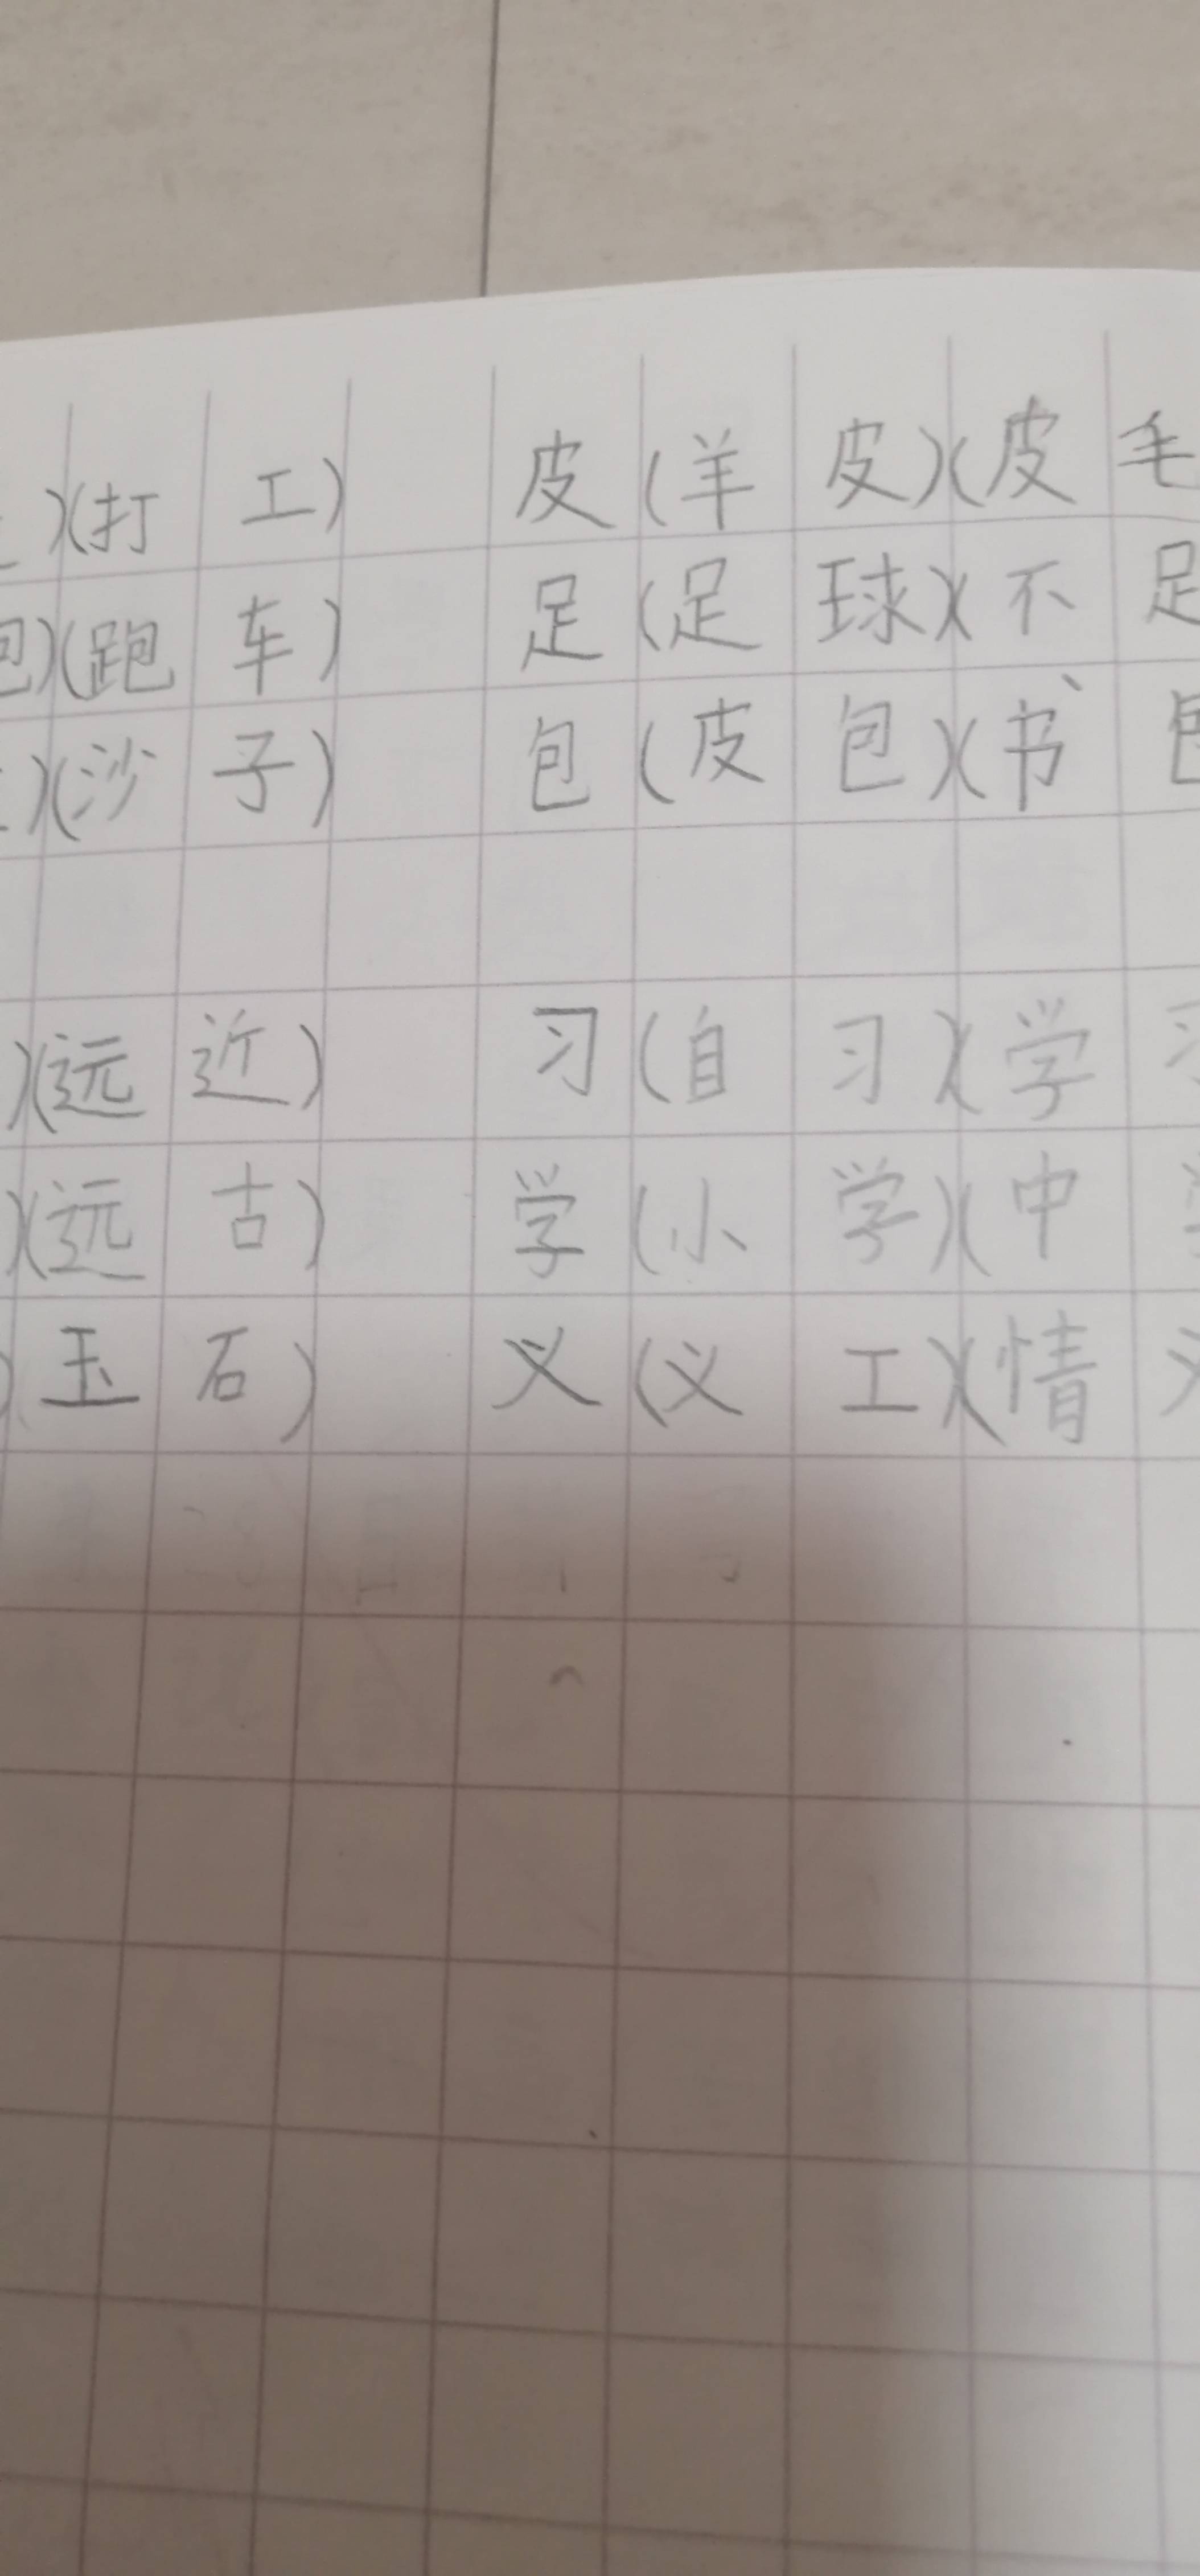 )(打工) 皮(羊皮)(皮毛
包)(跑车) 足(足球)(不足
)(沙子) 包(皮包)(书包
)(远近) 习(自习)(学习
)(远古) 学(小学)(中学
)玉石) 义(义工)(情义